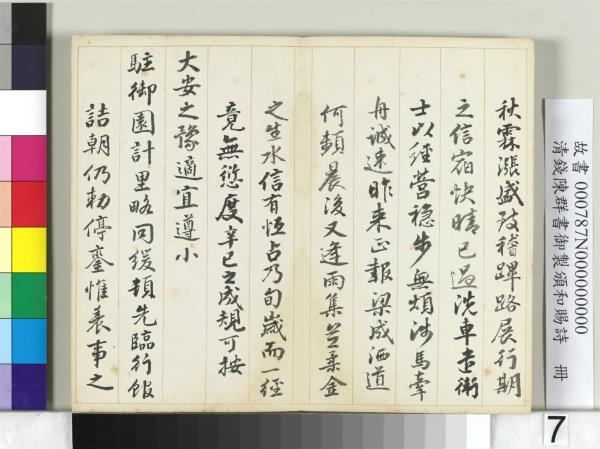 秋霖漲盛致稽蹕路展行期
之信宿快晴已過洗車遣衛
士以經營穩步無煩涉馬牽
舟誠速昨来正報梁成洒道
何頻晨後又逢雨集若柔金
之生水信有恒占乃旬歲而一經
竟無愆度辛已之成規可按
大安之豫適宜遵小
駐御園計里略同緩頓先臨行館
詰朝仍勅停鑾惟裒事之
故書 000787N000000000
清錢陳群書御製頒和賜詩 冊
7